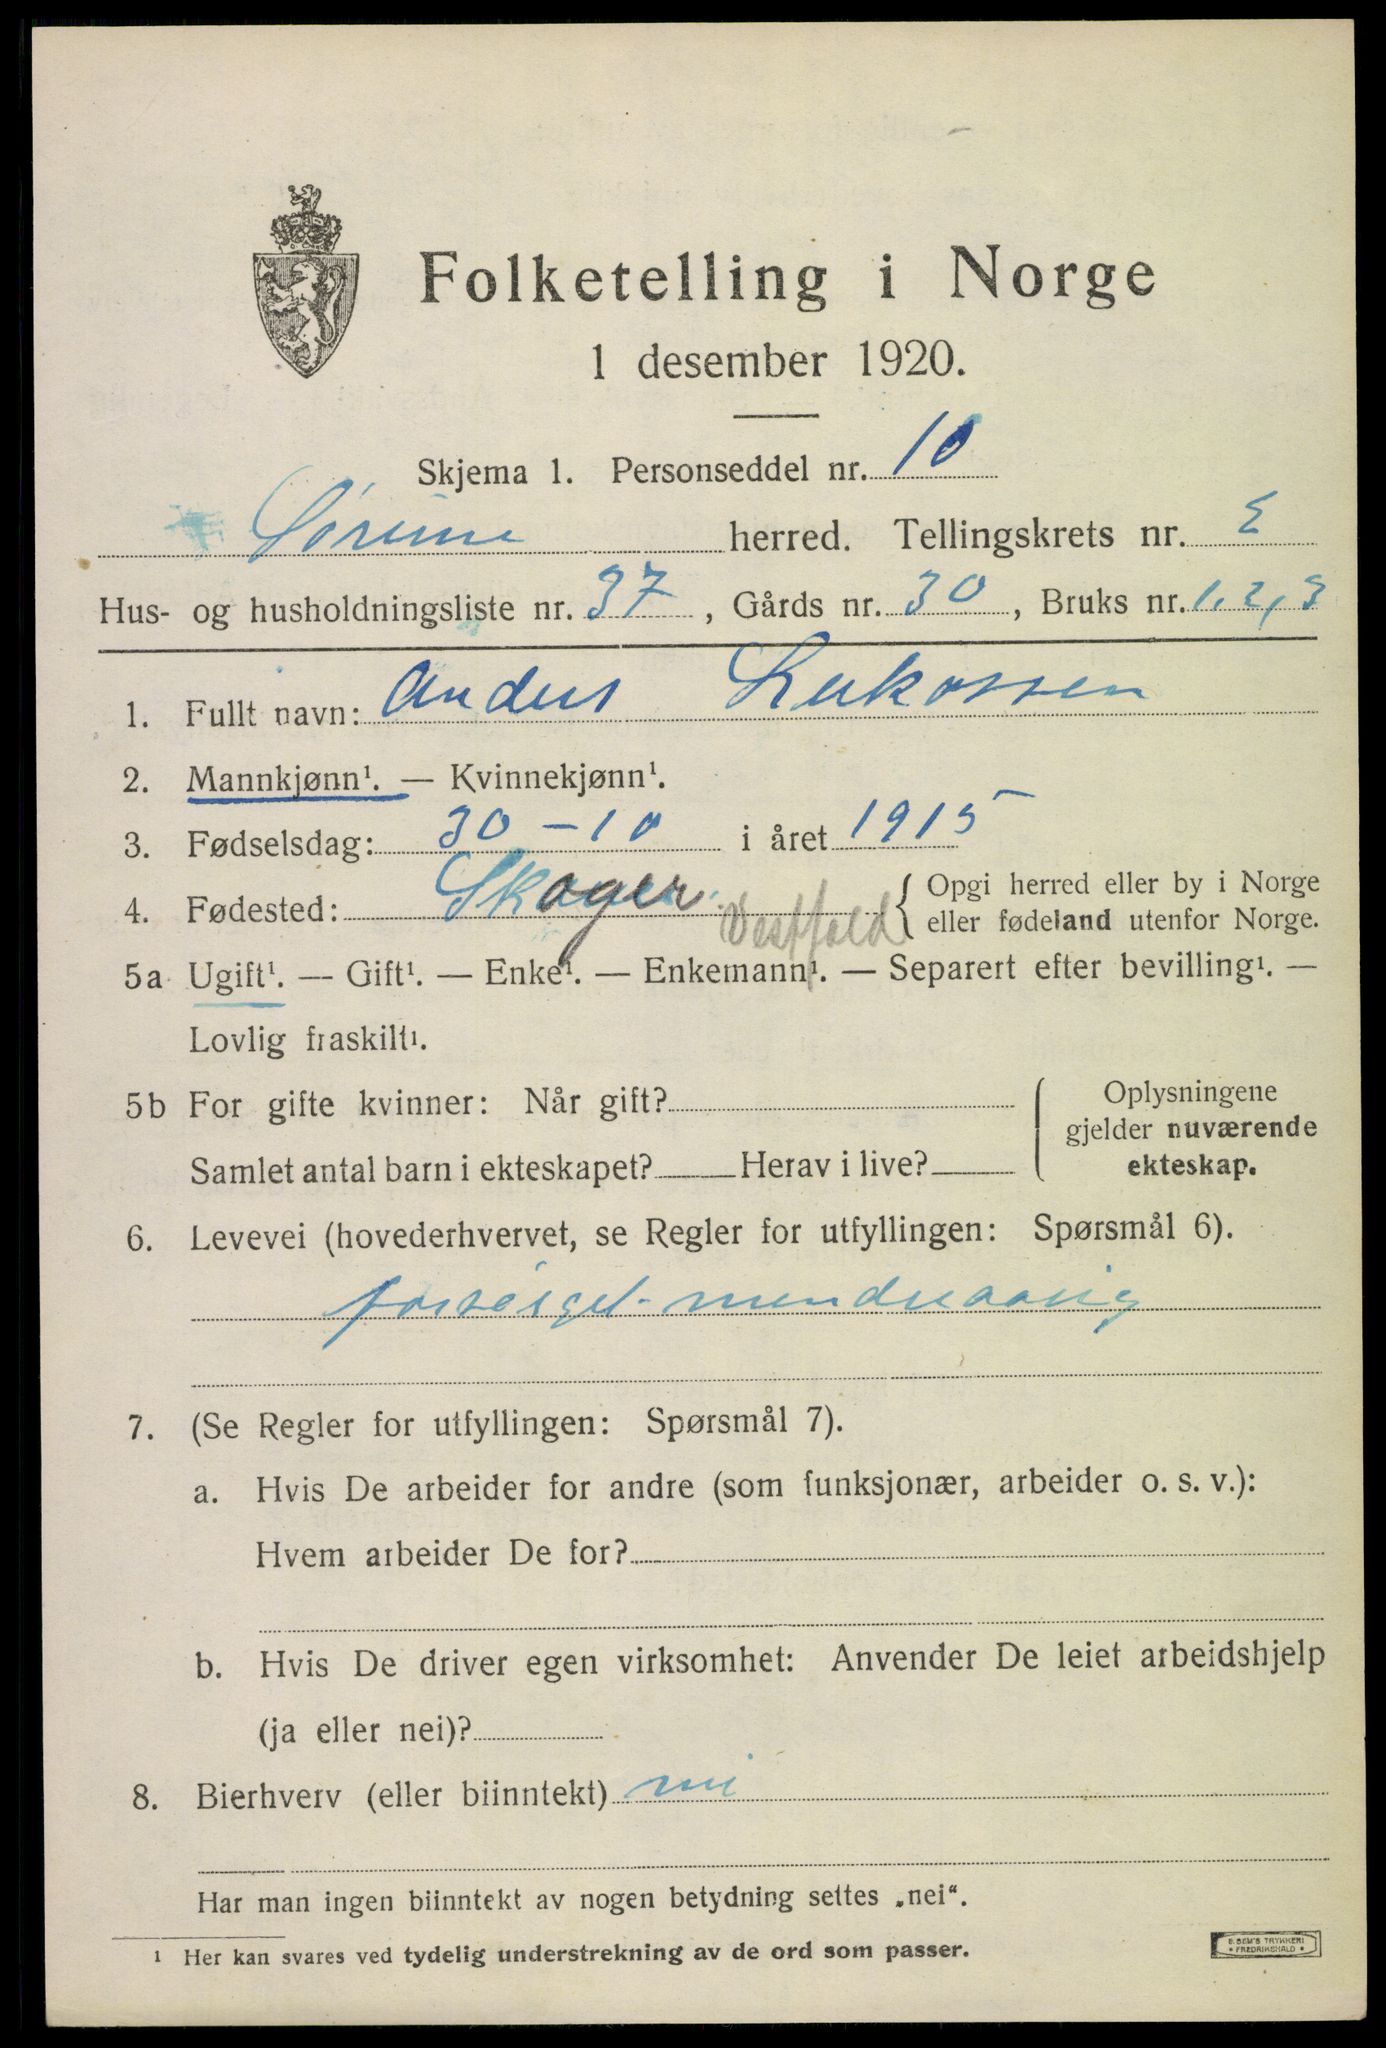 Folketelling i Norge
1 desember 1920.
Skjema 1. Personseddel nr. 10
Sørum herred. Tellingskrets nr. E
Hus- og husholdningsliste nr. 37, Gårds nr. 30, Bruks nr. 1, 2, 3
1. Fullt navn: Anders Lukassen
2. Mannkjønn¹. — Kvinnekjønn¹.
3. Fødselsdag: 30 - 10 i året 1915
4. Fødested: Skoger Vestfold { Opgi herred eller by i Norge
eller fødeland utenfor Norge.
5a Ugift¹. — Gift¹. — Enke¹. — Enkemann¹. — Separert efter bevilling¹. —
Lovlig fraskilt¹.
5b For gifte kvinner: Når gift?
Samlet antal barn i ekteskapet? Herav i live?
Oplysningene
gjelder nuværende
ekteskap.
6. Levevei (hovederhvervet, se Regler for utfyllingen: Spørsmål 6).
forsørget
7. (Se Regler for utfyllingen: Spørsmål 7).
a. Hvis De arbeider for andre (som funksjonær, arbeider o. s. v.):
Hvem arbeider De for?
b. Hvis De driver egen virksomhet: Anvender De leiet arbeidshjelp
(ja eller nei)?
8. Bierhverv (eller biinntekt) nei
Har man ingen biinntekt av nogen betydning settes „nei“.
¹ Her kan svares ved tydelig understrekning av de ord som passer.
E. SEM'S TRYKKERI
• FREDRIKSHALD •